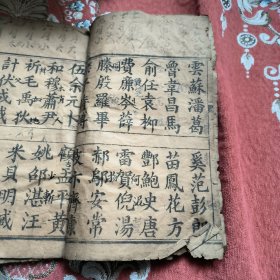 雲蘇潘葛
奚范彭郎
魯韋昌馬
苗鳳花方
俞任袁柳
酆鮑史唐
費廉岑薛
雷賀倪湯
滕殷羅畢
郝鄔安常
伍余元卜
顧孟平黃
和穆蕭尹
姚邵湛汪
祁毛禹狄
米貝明臧
計伏成